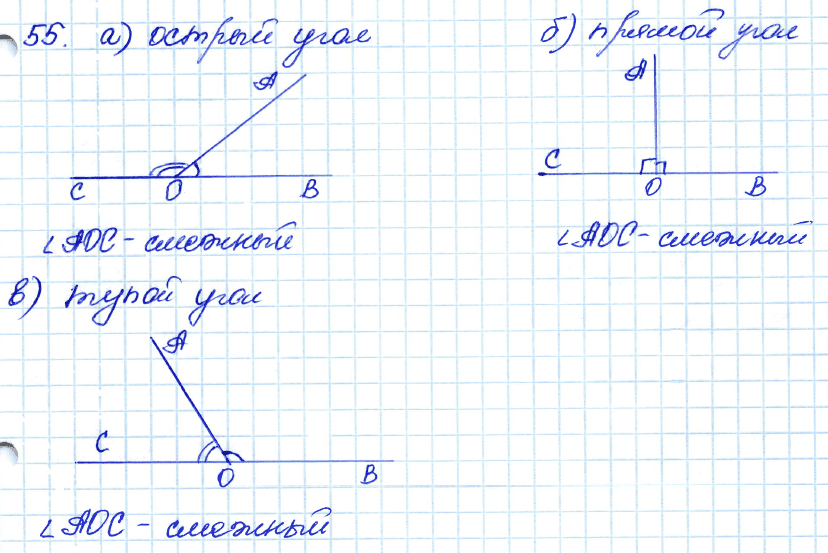 55. а) острый угол
б) прямой угол
A
C O B
A
C
O B
∠AOC - смежный
∠AOC - смежный
в) тупой угол
A
C
O B
∠AOC - смежный